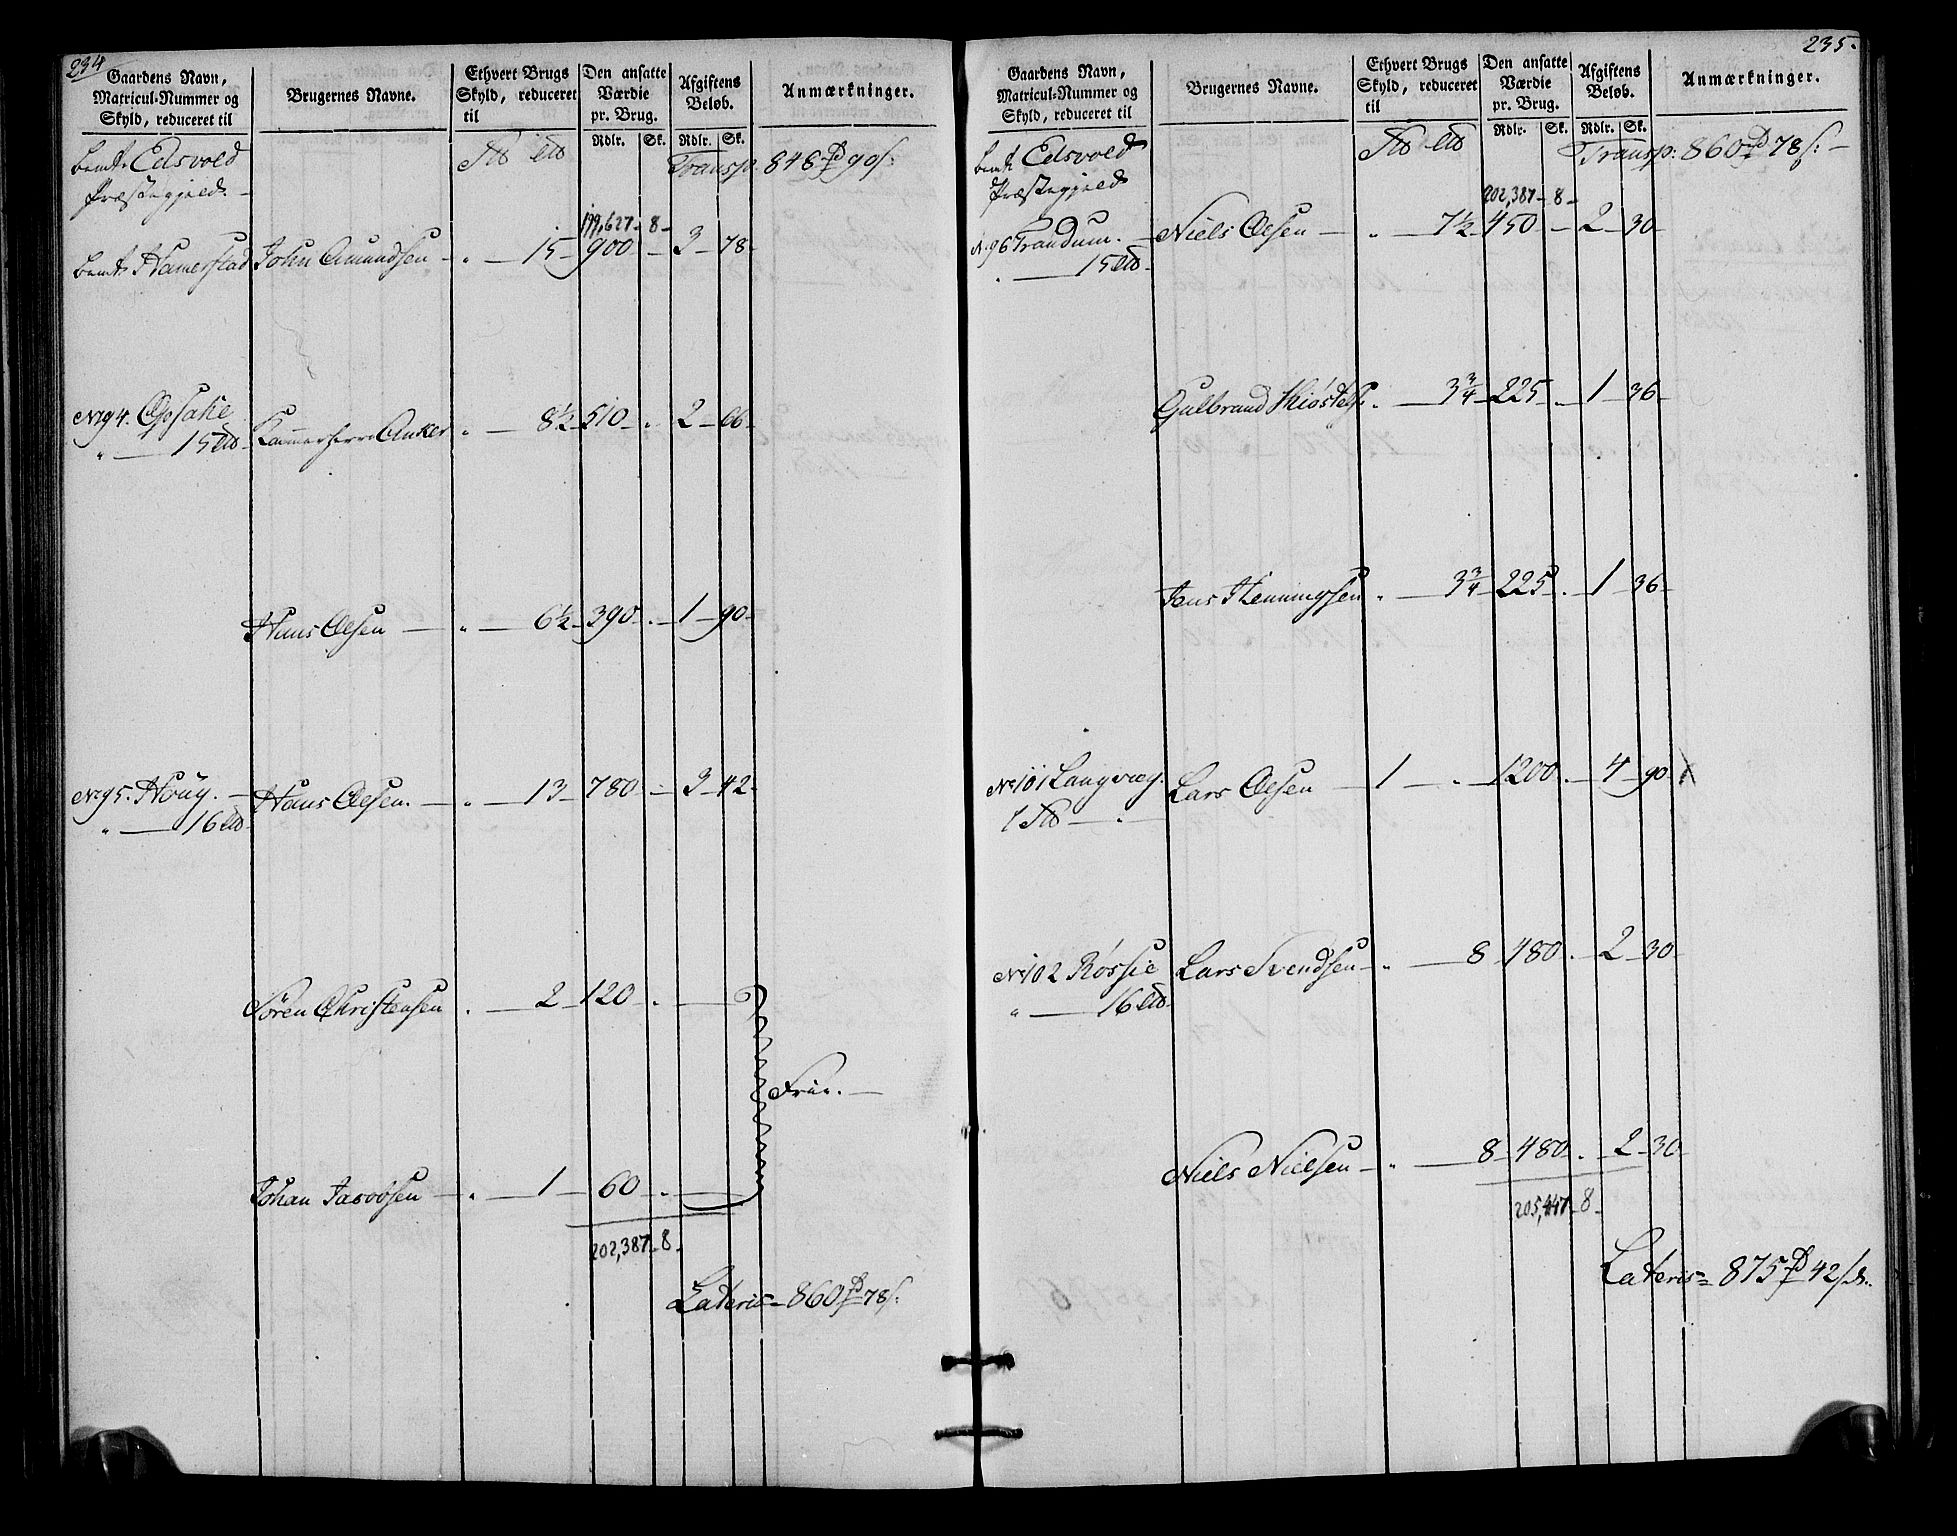 234
Gaardens Navn, Matricul-Nummer og Skyld, reduceret til | Brugernes Navne. | Ethvert Brugs Skyld, reduceret til | Den ansatte Værdie pr. Brug. | Afgiftens Beløb. | Anmærkninger.
Rdlr. Sk. Rdlr. Sk.
bemte Edsvold Transp: 848 90
Præstegjeld.
199,627 - 8 -
bemte Hamerstad John Amundsen - " - 15 - 900 - 3 - 78 -
N 94. Opsahl Kammerherre Anker " - 8½ - 510 - . 2 - 66 -
" — 15
Hans Olsen - " - 6½ - 390 - . - 1 - 90 -
N 95. Houg. - Hans Olsen. - " - 13 - 780 - 3 - 42 -
" — 16
Søren Christensen . - 2 - 120 - .
Frie. -
Johan Jacobsen - " - 1 - 60 - .
202,387 - 8 -
Lateris = 860 78
235.
Gaardens Navn, Matricul-Nummer og Skyld, reduceret til | Brugernes Navne. | Ethvert Brugs Skyld, reduceret til | Den ansatte Værdie pr. Brug. | Afgiftens Beløb. | Anmærkninger.
Rdlr. Sk. Rdlr. Sk.
bemt Edsvold Transp: 860 78
Præstegjeld
202,387 - 8 -
N 96 Trandum. - Niels Olsen - " - 7½ - 450 - 2 - 30 -
" — 15
Gulbrand . - 3¾ - 225 . - 1 - 36 -
Jens Henningsen . - 3¾ - 225 - . - 1 - 36 -
No 101 Langvæg. Lars Olsen - 1 - " - 1200 . - 4 - 90 -
1
No 102 Røssie Lars Svendsen - " - 8 480 . 2 - 30
" — 16
Niels Nielsen - " - 8 - 480 . - 2 - 30 -
205,447 - 8 -
Lateris = 875 42